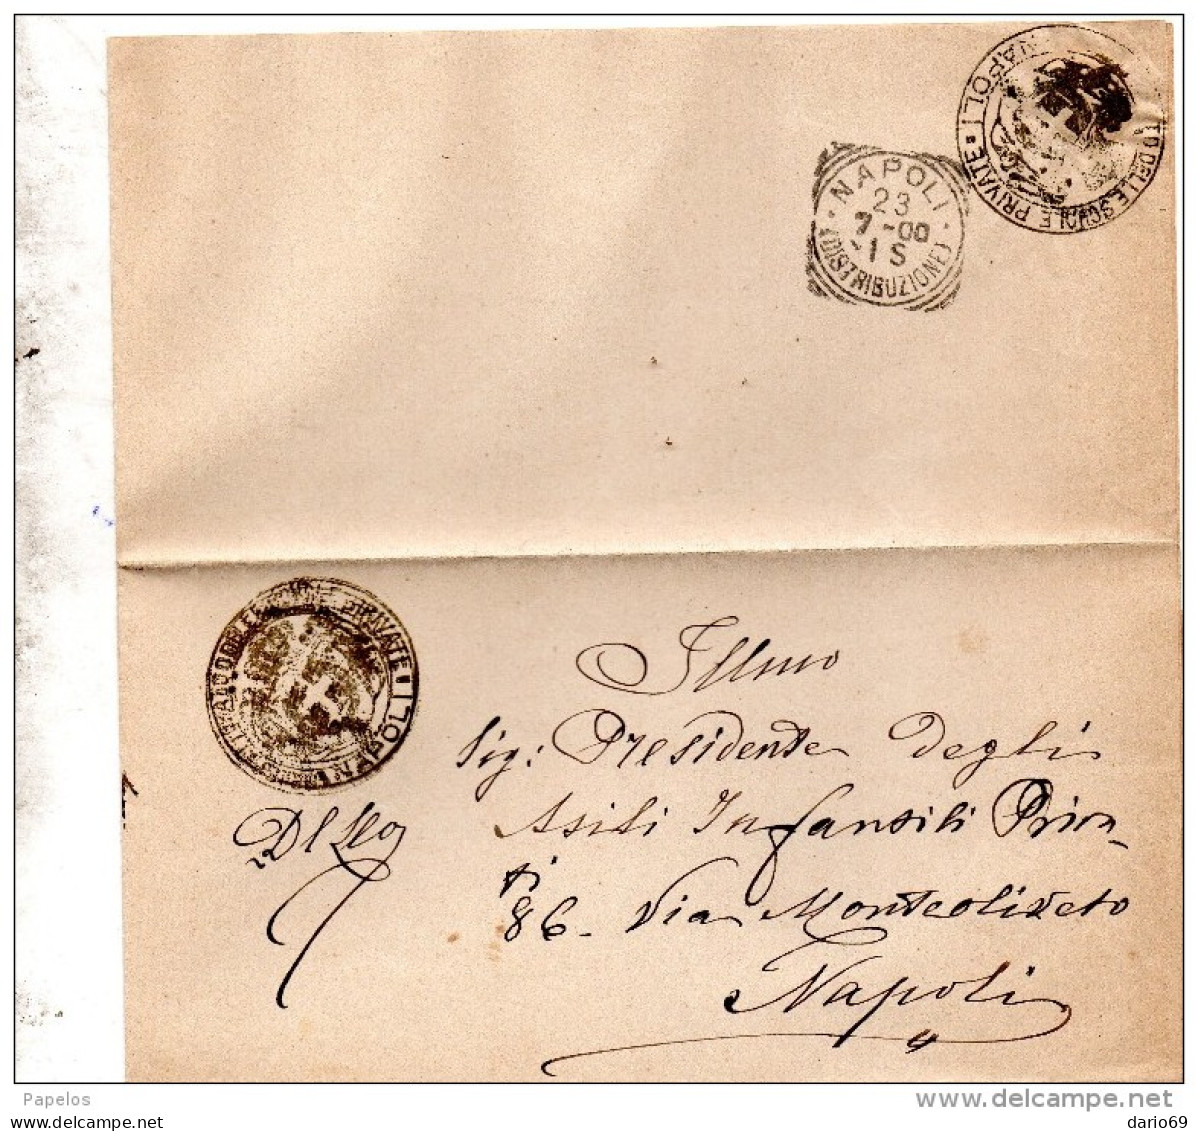 NAPOLI
TO DELLE SCUOLE PRIVATE
NAPOLI
23
7-00
-1 S
(DISTRIBUZIONE)
PRIVATE
NAPOLI
Illmo
Sig: Presidente degli
Asili Infantili
86 - Via Monteoliveto
Napoli
Papelos
delcampe.net
dario69